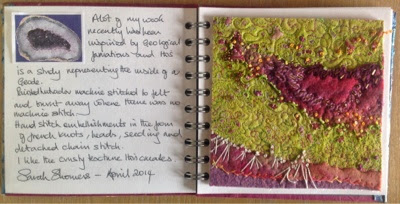 A lot of my work
recently has been
inspired by geological
formations and this
is a study representing the inside of a
Geode.
machine stitched to felt
and burnt away where there was no
machine stitch.
Hand stitch embellishments in the form
of french knots, beads, seeding and
detached chain stitch.
I like the crusty texture this creates.
Sarah - April 2014